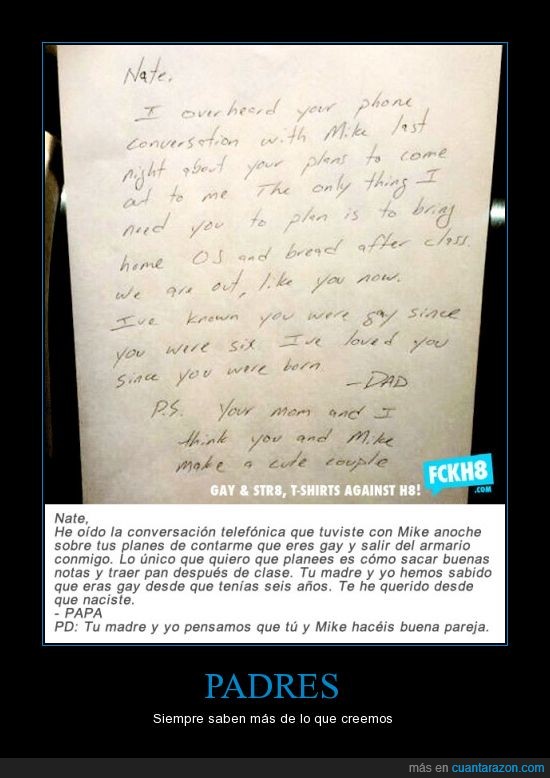 Nate,
I overheard your phone
conversation with Mike last
night about your plans to come
out to me The only thing I
need you to plan is to bring
home OJ and bread after class.
we are out, like you now.
I've known you were gay since
you were six. I've loved you
since you were born.
- DAD
P.S. Your mom and I
think you and Mike
make a cute couple
GAY & STR8, T-SHIRTS AGAINST H8!
FCKH8
.COM
Nate,
He oído la conversación telefónica que tuviste con Mike anoche
sobre tus planes de contarme que eres gay y salir del armario
conmigo. Lo único que quiero que planees es cómo sacar buenas
notas y traer pan después de clase. Tu madre y yo hemos sabido
que eras gay desde que tenías seis años. Te he querido desde
que naciste.
- PAPA
PD: Tu madre y yo pensamos que tú y Mike hacéis buena pareja.
PADRES
Siempre saben más de lo que creemos
más en cuantarazon.com